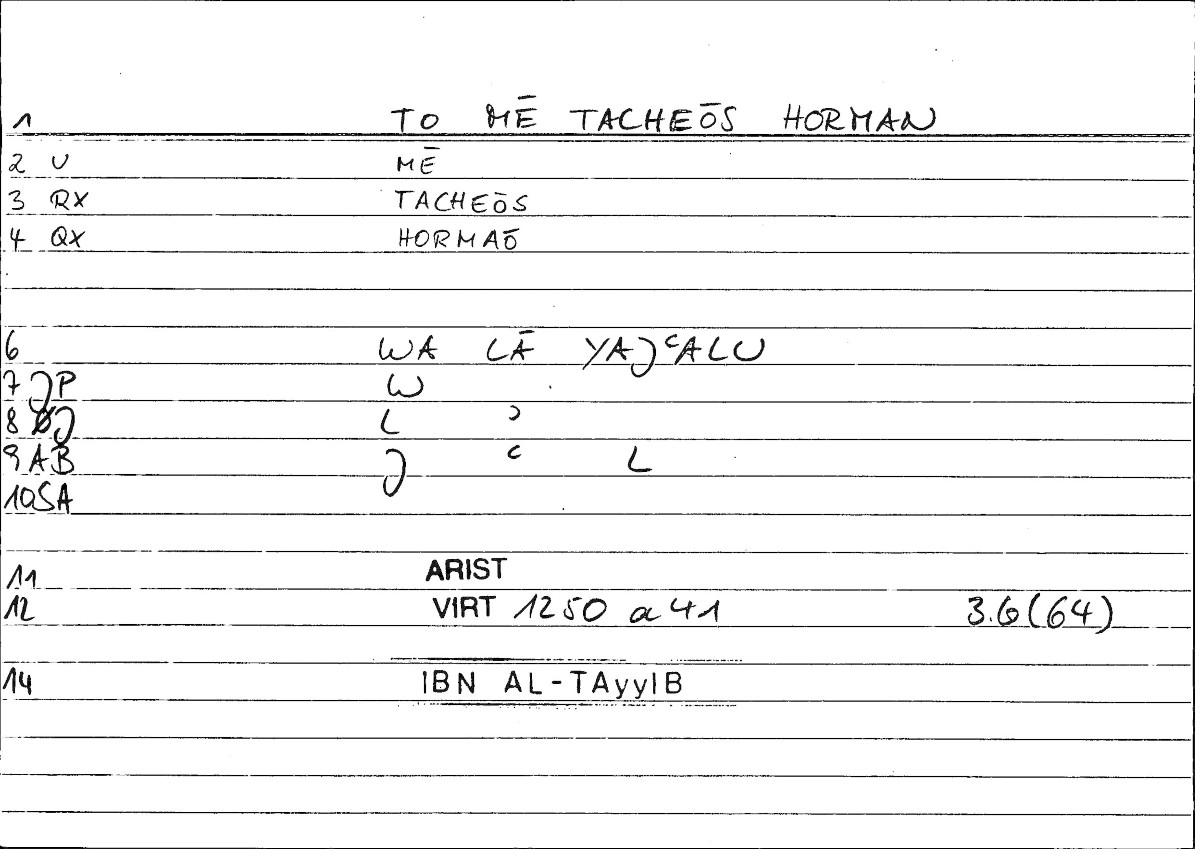 1 TO MĒ TACHEŌS HORMAN
2 U MĒ
3 RX TACHEŌS
4 QX HORMAŌ
6 WA LĀ YAJʿALU
7 JP W
8 J L ʾ
9 AB J ʿ L
10 SA
11 ARIST
12 VIRT 1250 a 41 3.6(64)
14 IBN AL-TAyyIB